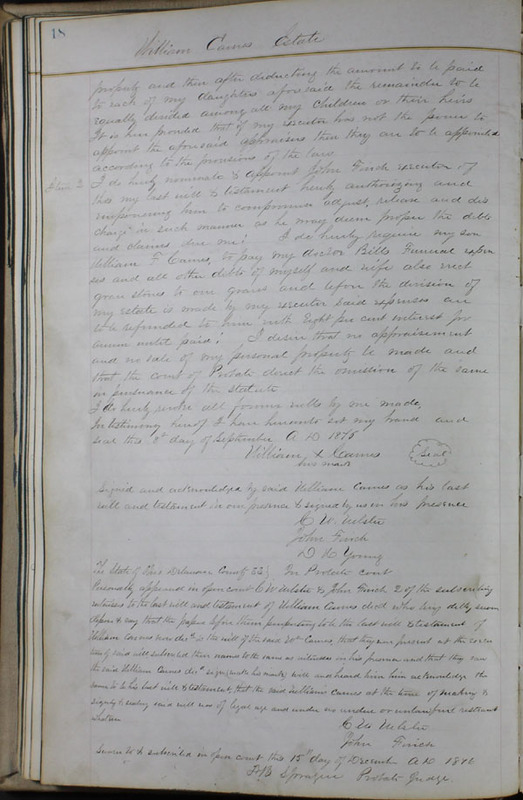 18
William Cames Estate
property and then after deducting the amount to be paid
to each of my daughters aforesaid the remainder to be
equally divided among all my children or their heirs
It is here provided that if my executor has not the power to
appoint the aforesaid appraisers then they are to be appointed
according to the provisions of the law
Item 2 I do hereby nominate & appoint John Finch executor of
this my last will & testament hereby authorizing and
empowering him to compromise adjust, release and dis
charge in such manner as he may deem proper the debts
and claims due me. I do hereby require my son
William F. Cames, to pay my doctor Bills Funeral expen
ses and all other debts of myself and wife also erect
grave stones to our graves and before the division of
my estate is made by my executor said expenses are
to be refunded to him with Eight per cent interest per
annum until paid. I desire that no appraisement
and no sale of my personal property be made and
that the court of Probate direct the omission of the same
in pursuance of the statute
I do hereby revoke all former wills by me made,
In testimony hereof I have hereunto set my hand and
seal this 8th day of September A D 1875
William X Cames Seal
his mark
Signed and acknowledged by said William Cames as his last
will and testament in our presence & signed by us in his presence
C W Webster
John Finch
D H Young
The State of Ohio Delaware County SS In Probate court
Personally appeared in open court C W Webster & John Finch 2 of the subscribing
witnesses to the last will and testament of William Cames decd who being duly sworn
depose & say that the paper before them purporting to be the last will & testament of
William Cames now decd is the will of the said Wm Cames, that they were present at the execu
tion of said will subscribed their names to the same as witnesses in his presence and that they saw
the said William Cames decd sign (made his mark) will and heard him acknowledge the
same as his last will & testament, that the said William Cames at the time of making &
signing & sealing said will was of legal age and under no undue or unlawful restraint
whatever
C W Webster
John Finch
Sworn to & subscribed in open court this 15th day of December A D 1876
F B Sprague Probate Judge